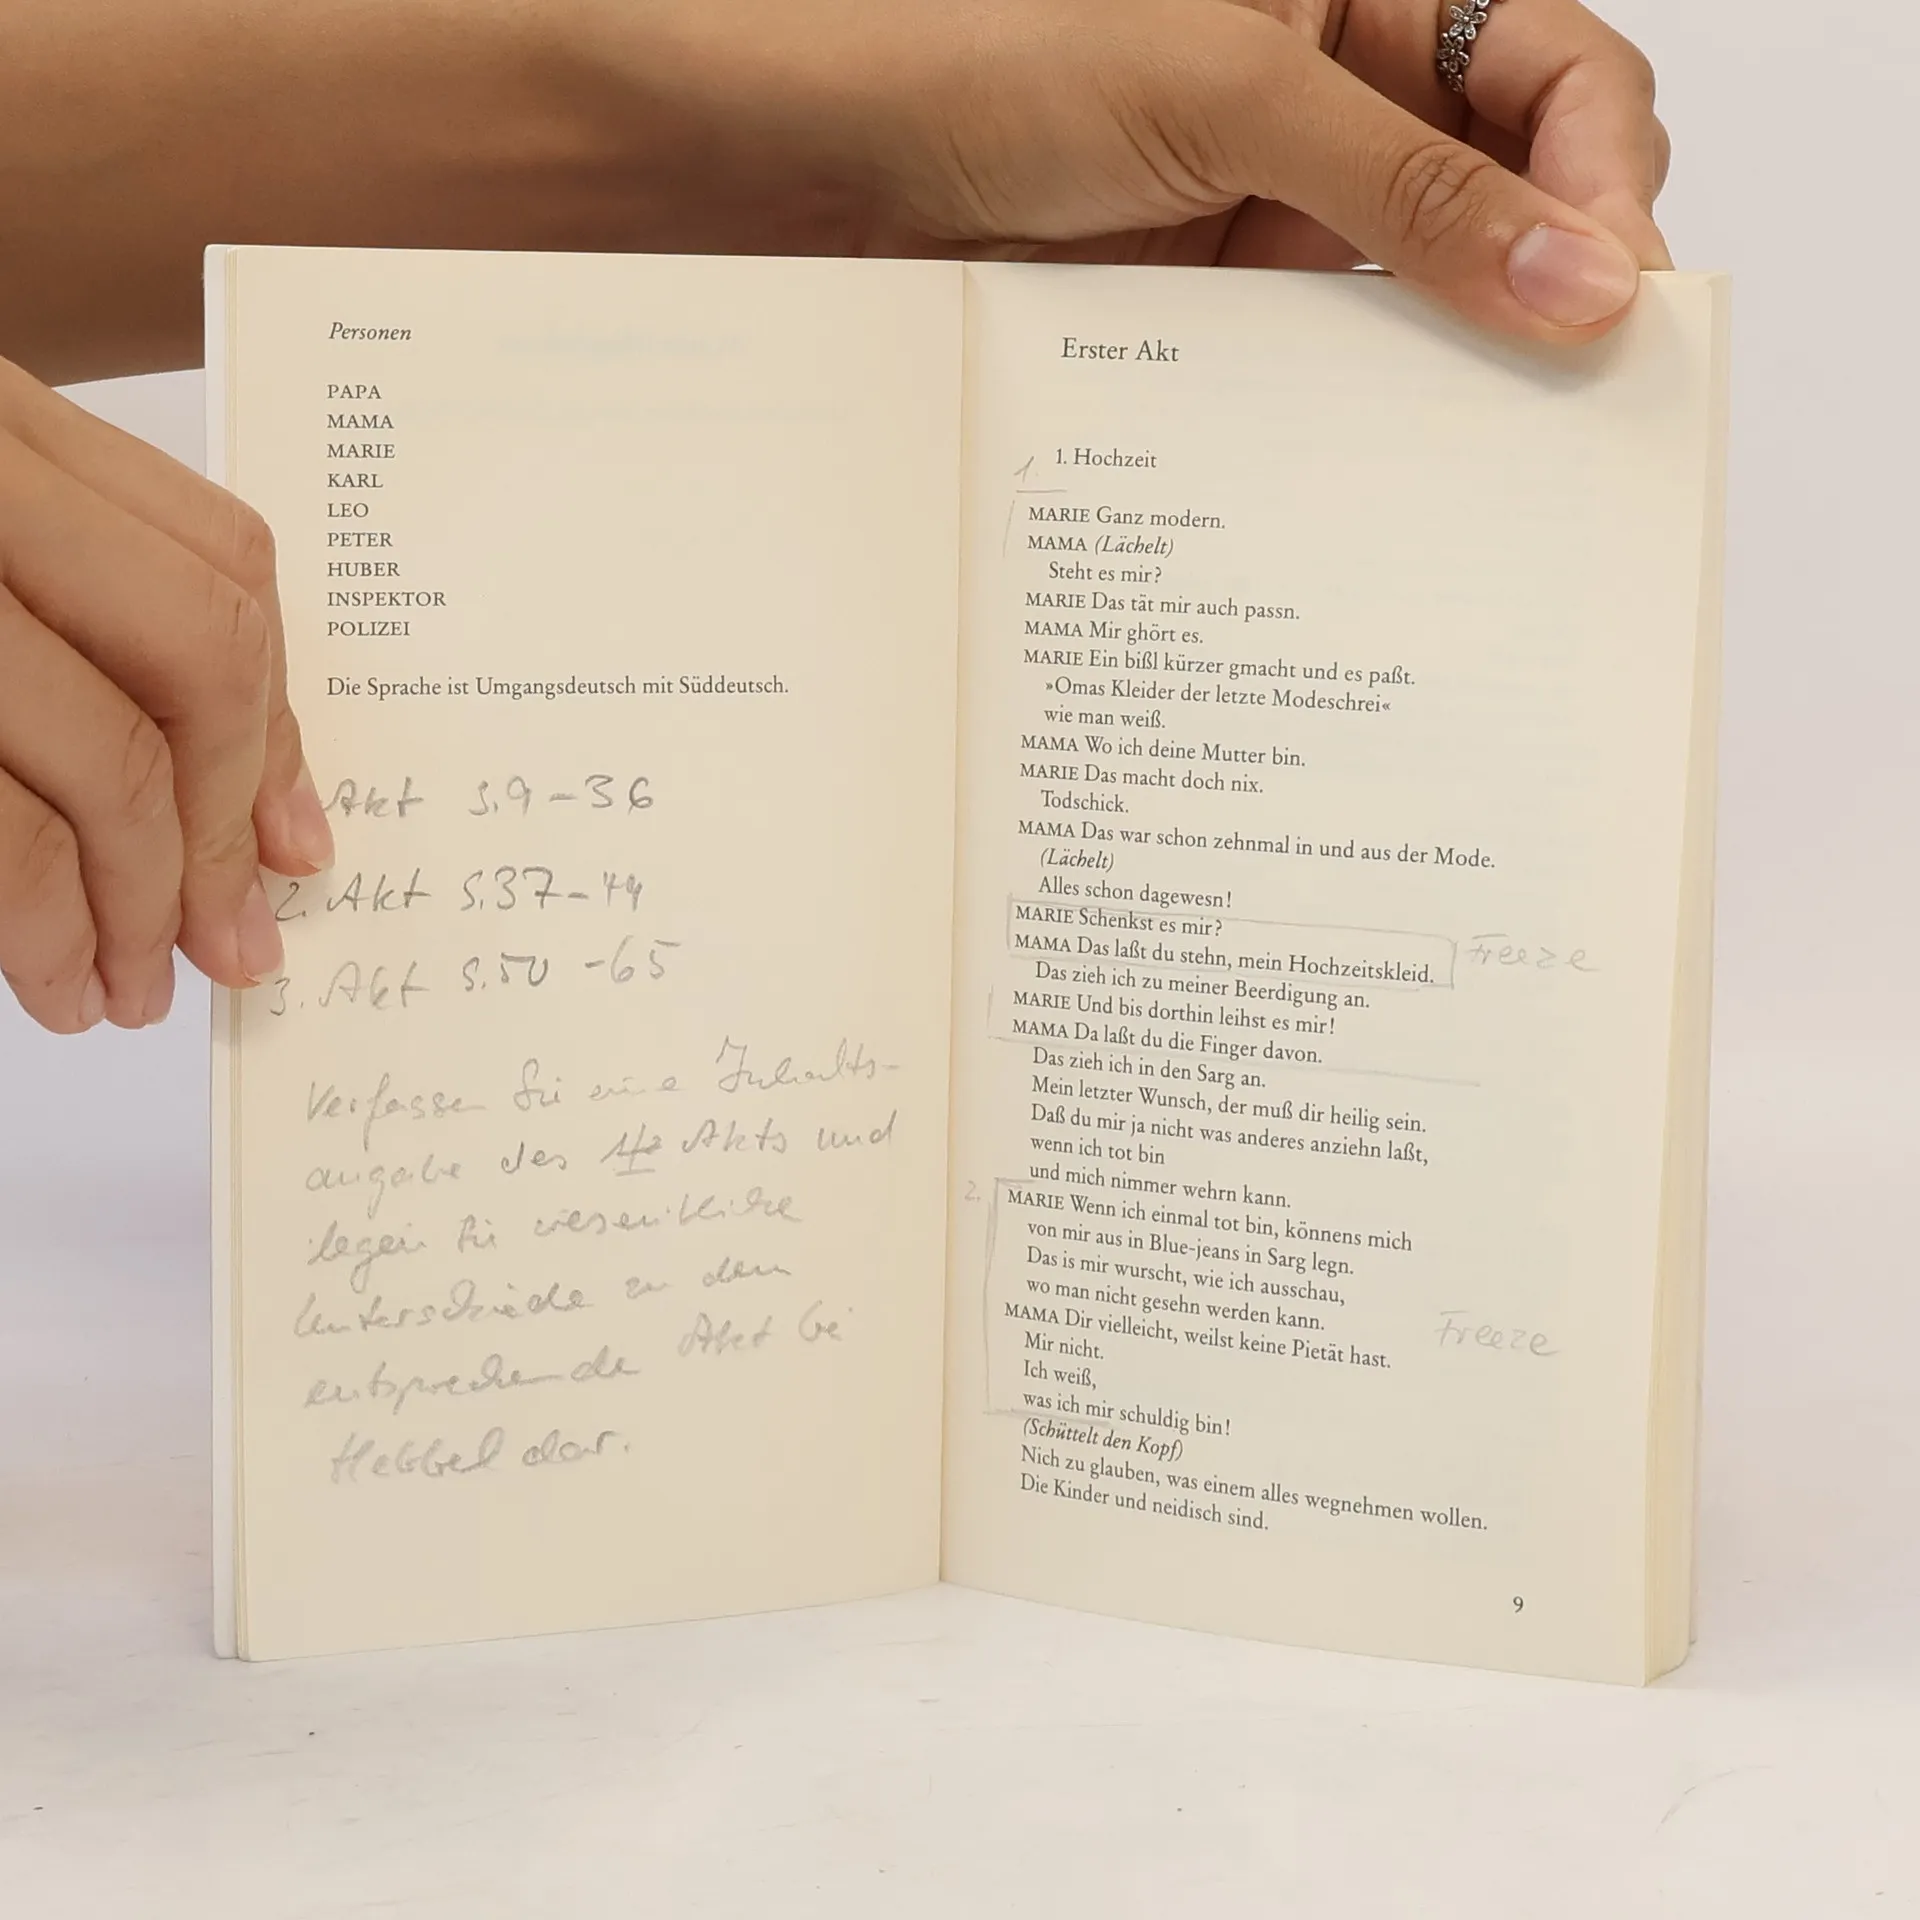 Personen
PAPA
MAMA
MARIE
KARL
LEO
PETER
HUBER
INSPEKTOR
POLIZEI
Die Sprache ist Umgangsdeutsch mit Süddeutsch.
Akt S.9-36
2. Akt S.37-49
3. Akt S.50-65
Verfassen Sie eine Inhalts-
angabe des Akts und
legen Sie wesentliche
Unterschiede zu dem
entsprechende Akt bei
Hebbel dar.
Erster Akt
1. Hochzeit
1.
MARIE Ganz modern.
MAMA (Lächelt)
Steht es mir?
MARIE Das tät mir auch passn.
MAMA Mir ghört es.
MARIE Ein bißl kürzer gmacht und es paßt.
»Omas Kleider der letzte Modeschrei«
wie man weiß.
MAMA Wo ich deine Mutter bin.
MARIE Das macht doch nix.
Todschick.
MAMA Das war schon zehnmal in und aus der Mode.
(Lächelt)
Alles schon dagewesn!
MARIE Schenkst es mir?
MAMA Das laßt du stehn, mein Hochzeitskleid. Freeze
Das zieh ich zu meiner Beerdigung an.
MARIE Und bis dorthin leihst es mir!
MAMA Da laßt du die Finger davon.
Das zieh ich in den Sarg an.
Mein letzter Wunsch, der muß dir heilig sein.
Daß du mir ja nicht was anderes anziehn laßt,
wenn ich tot bin
und mich nimmer wehrn kann.
2. MARIE Wenn ich einmal tot bin, können mich
von mir aus in Blue-jeans in Sarg legn.
Das is mir wurscht, wie ich ausschau,
wo man nicht gesehn werden kann.
MAMA Dir vielleicht, weilst keine Pietät hast. Freeze
Mir nicht.
Ich weiß,
was ich mir schuldig bin!
(Schüttelt den Kopf)
Nich zu glauben, was einem alles wegnehmen wollen.
Die Kinder und neidisch sind.
9